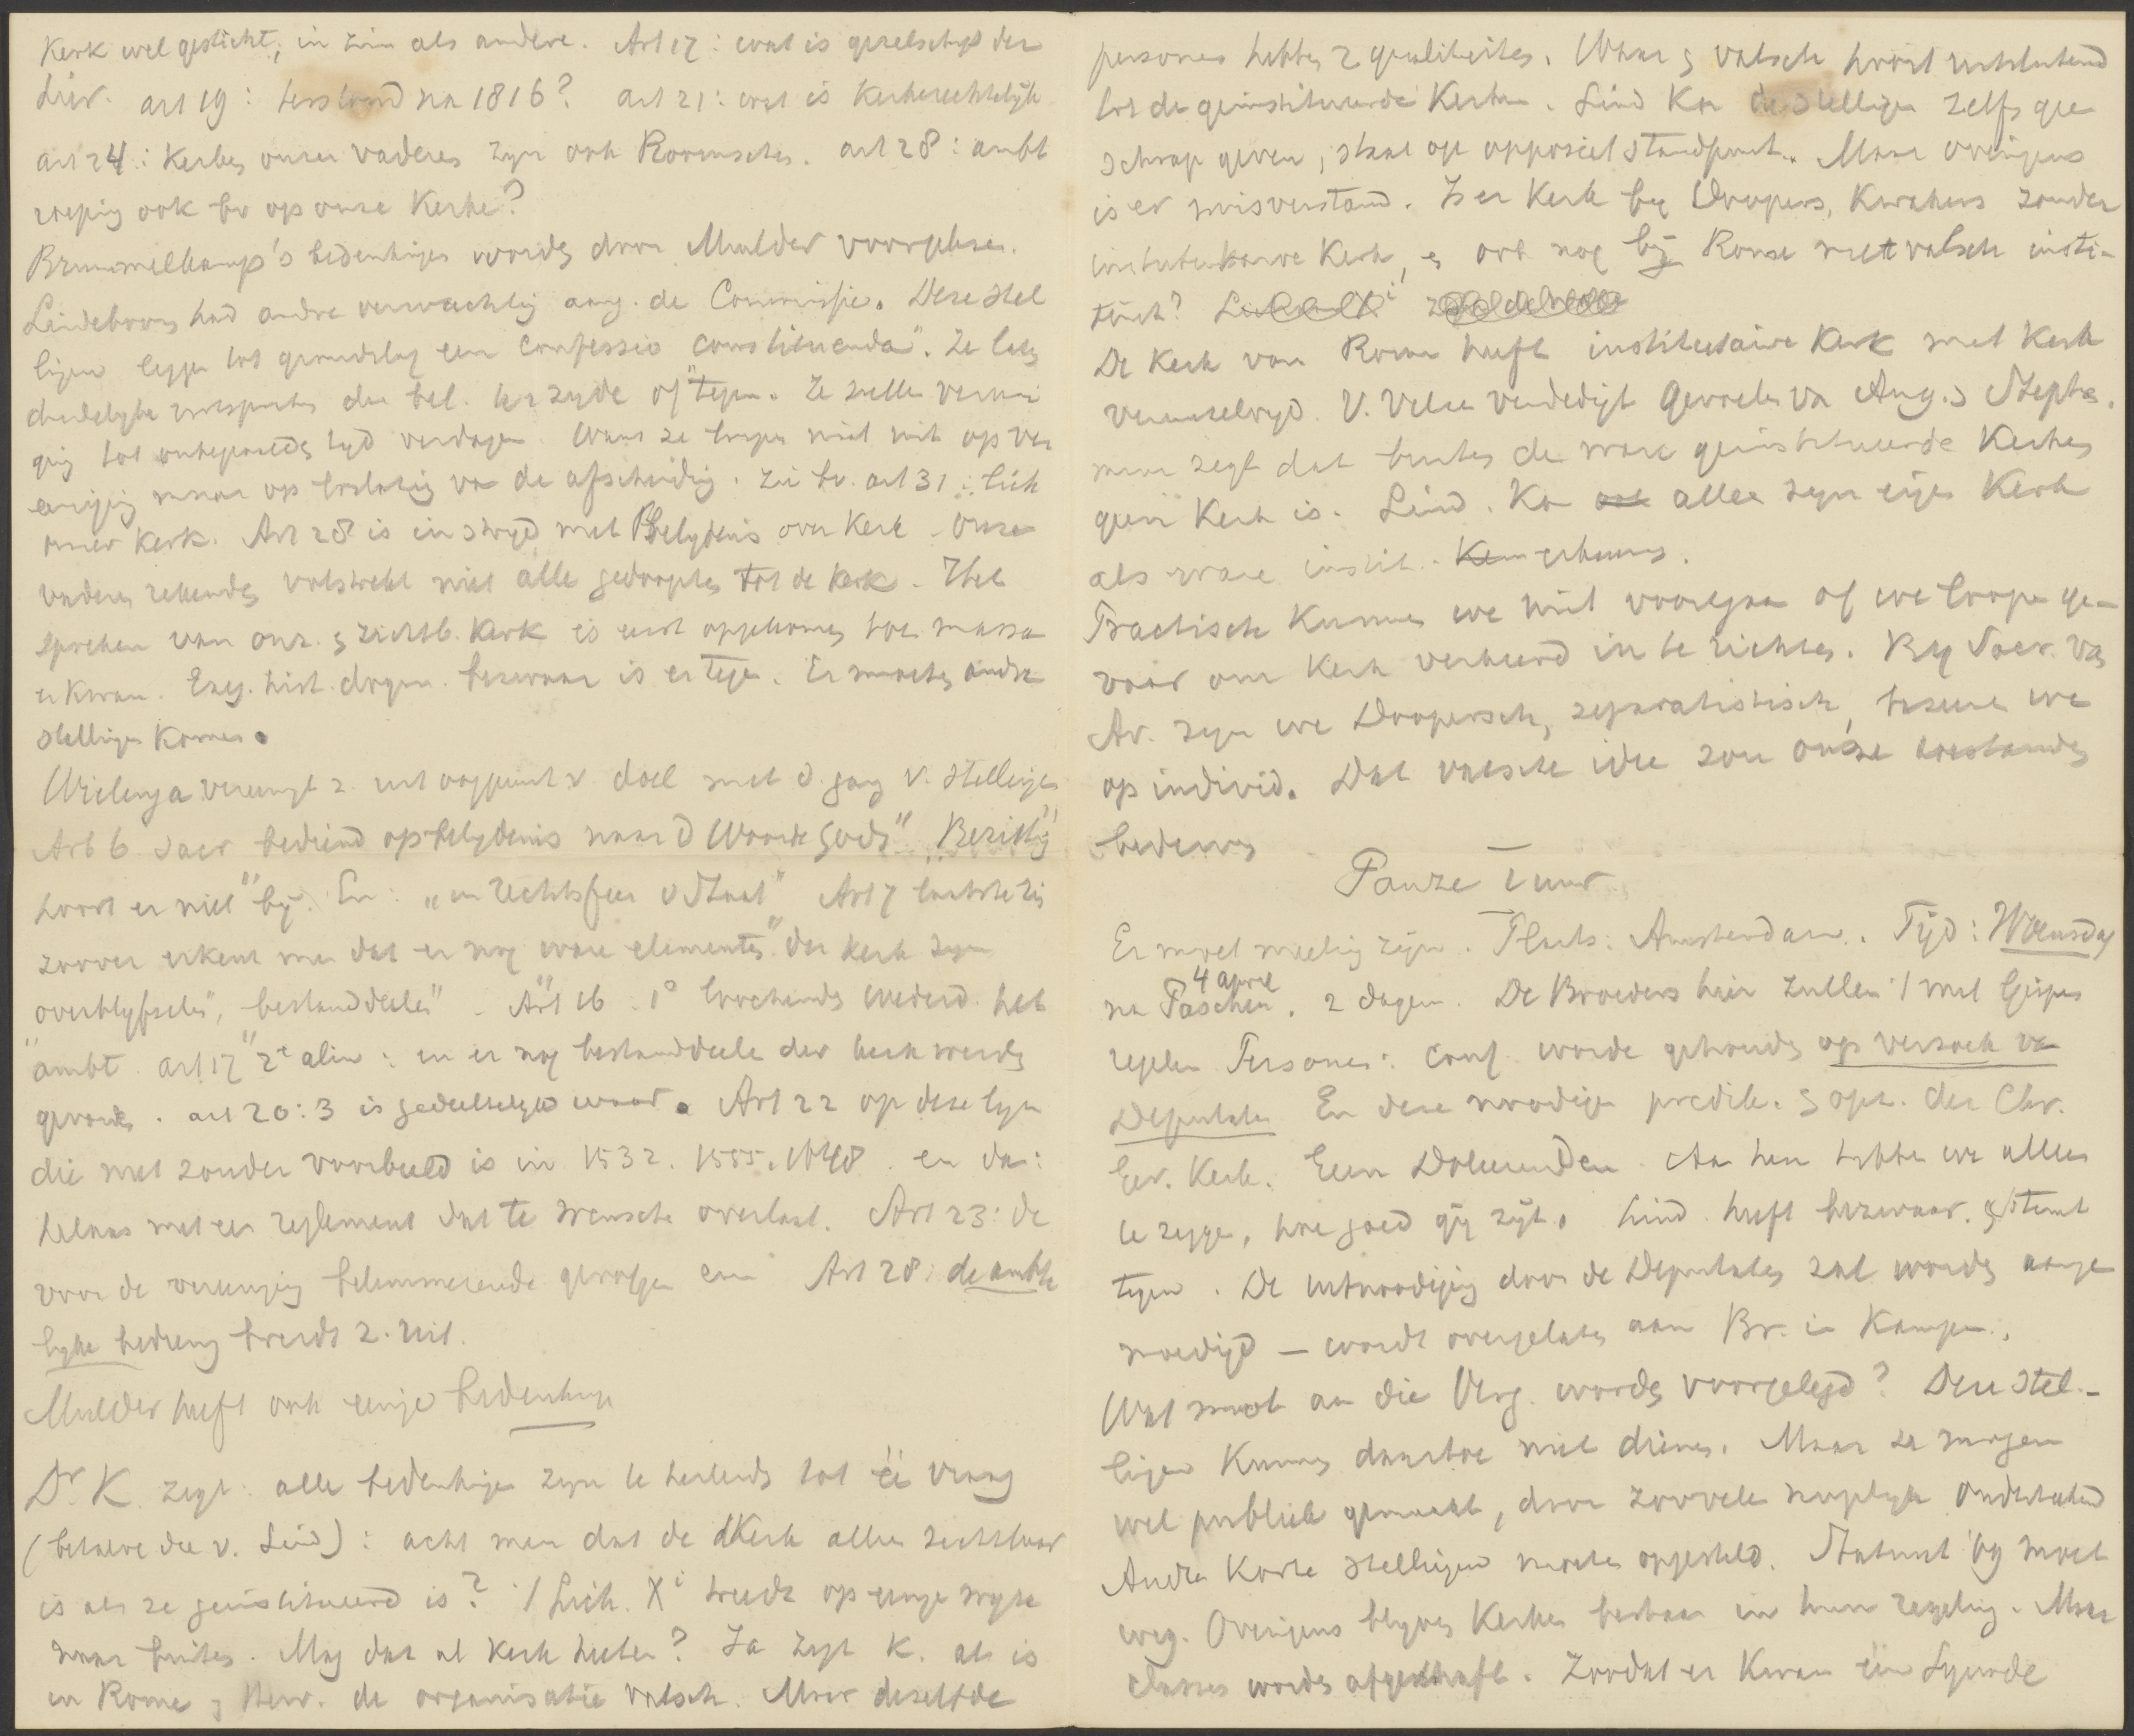 Kerk wel gesticht; in zin als andere. Art 17: wat is gezelschap der
Liev. art 19: bestond na 1816? art 21: wat is kerkrechtelijk
art 24: Kerken onzer vaderen zyn ook Roomschen. art 28: ambt
roeping ook bv op onze Kerke?
Brummelkamp's bedenkingen worden door Mulder voorgelezen.
Lindeboom had andre verwachting aang. de Commissie. Deze stel
lingen leggen tot grondslag een "Confessio constituenda". Ze laten
duidelyke uitspraken der bel. ter zyde of tegen. Ze zullen vereni
ging tot onbepaalden tyd verdagen. Want ze loopen niet uit op ver
eeniging maar op loslating van de afscheiding. Zie bv. art 31:
onzer Kerk. Art 28 is in stryd met Belydenis over Kerk. Onze
vaderen rekenden volstrekt niet alle gedoopten tot de Kerk. Het
spreken van onz. en zichtb. Kerk is eerst opgekomen toen massa
er kwam. Exeg. hist. dogm. bezwaar is er tegen. Er moeten andre
stellingen komen.
Wielenga vereenigt z. met oogpunt v. doel met d. gang v. stellingen
Art 6 Sacr bediend op belydenis naar d Woorde Gods" "Bezitting"
hoort er niet by. En: "en rechtsfeer v d Staat" Art 7 laatste zin
zoover erkent men dat er nog ware "elementen" der Kerk zyn
"overblyfselen", "bestanddeelen". Art 16. 1° Nederd. het
"ambt" art 17 2e alin: en er nog bestanddeelen der kerk werden
gevonden. art 20:3 is gedeeltelyk waar. Art 22 op deze lyn
die niet zonder voorbeeld is in 1532. 1555. 1648. en dan:
helaas met een reglement dat te wenschen overlaat. Art 23: de
voor de vereeniging belemmerende gevolgen Art 28: de ambte
lyke bediening breidt z. uit.
Mulder heeft ook eenige bedenkingen
Dr K. zegt: alle bedenkingen zyn te herleiden tot éé vraag
(behalve die v. Lind): acht men dat de Kerk alleen zichtbaar
is als ze geinstitueerd is? / Lich. Xi treedt op eenige wyze
naar buiten. Mag dat al Kerk heeten? Ja zegt K. al is
in Rome en Herv. de organisatie valsch. Maar dezelfde
personen hebben 2 qualiteiten. Waar en valsch hoort uitsluitend
tot de geinstitueerde Kerken. Lind Kan de stellingen zelfs geen
schrap geven, staat op opposiet standpunt. Maar overigens
is er misverstand. Is er Kerk by Doopers, Kwakers zonder
institutaire Kerk, en ook nog bij Rome met valsch insti-
tuut?
De Kerk van Rome heeft institutaire Kerk met Kerk
vereenzelvigd. V. Velzen verdedigt gevoelen van Aug. en Steph.
maar zegt dat buiten de ware geinstitueerde Kerken
geen Kerk is. Lind. Kan alleen zyn eigen Kerk
als ware instit. erkennen.
Practisch Kunnen we niet voortgaan of we loopen ge-
vaar om Kerk verkeerd in te richten. By Sacr. van
Av. zyn we Doopersch, separatistisch, bazeeren we
op individ. Dat valsche idee zou onze toestanden
bederven
Pauze 1 uur
Er moet meeting zijn. Plaats: Amsterdam. Tijd: Woensdag
4 april
na Paschen. 2 dagen. De Broeders hier zullen 't met Gispen
regelen Personen: Conf. worde gehouden op verzoek van
Deputaten En deze noodigen predik. en opz. der Chr.
Ger. Kerk. Geen Doleerenden. Aan hen hebben we alleen
te zeggen, hoe goed gij zijt. Lind heeft bezwaar. en stemt
tegen. De uitnoodiging door de Deputaten zal worden
— wordt overgelaten aan Br. in Kampen.
Wat moet aan die Verg. worden voorgelegd? Deze stel-
lingen Kunnen daartoe niet dienen. Maar ze mogen
wel publiek gemaakt, door zooveel mogelyk onderteekend
Andre Korte stellingen moeten opgesteld. Statuut '69 moet
weg. Overigens blyven Kerken bestaan in hun regeling. Maar
classes worden afgeschaft. Zoodat er Kwam éen Synode